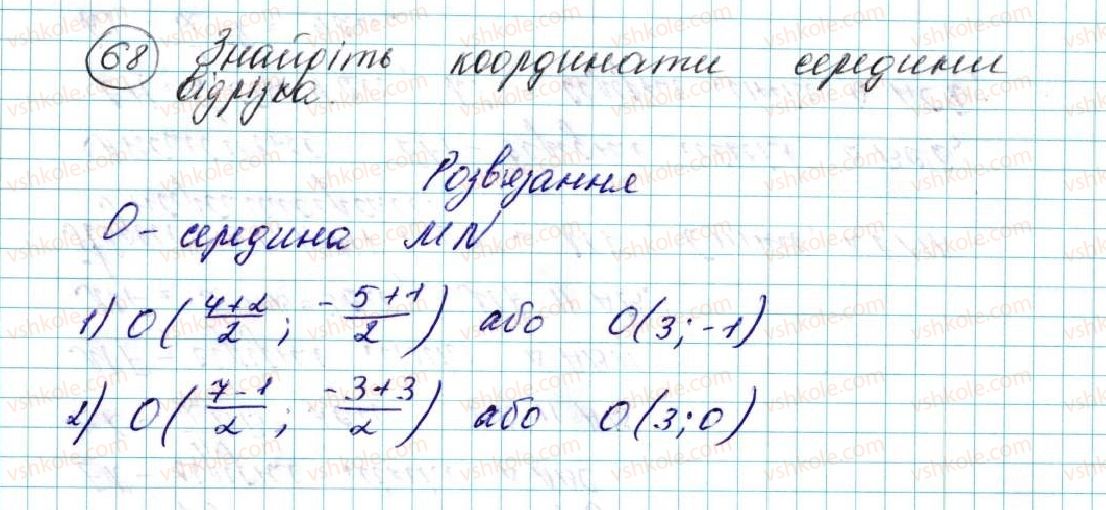 68 Знайдіть координати середини
відрізка.
Розв'язання
O - середина MN
1) O(\frac{4+2}{2}; \frac{-5+1}{2}) або O(3; -1)
2) O(\frac{7-1}{2}; \frac{-3+3}{2}) або O(3; 0)